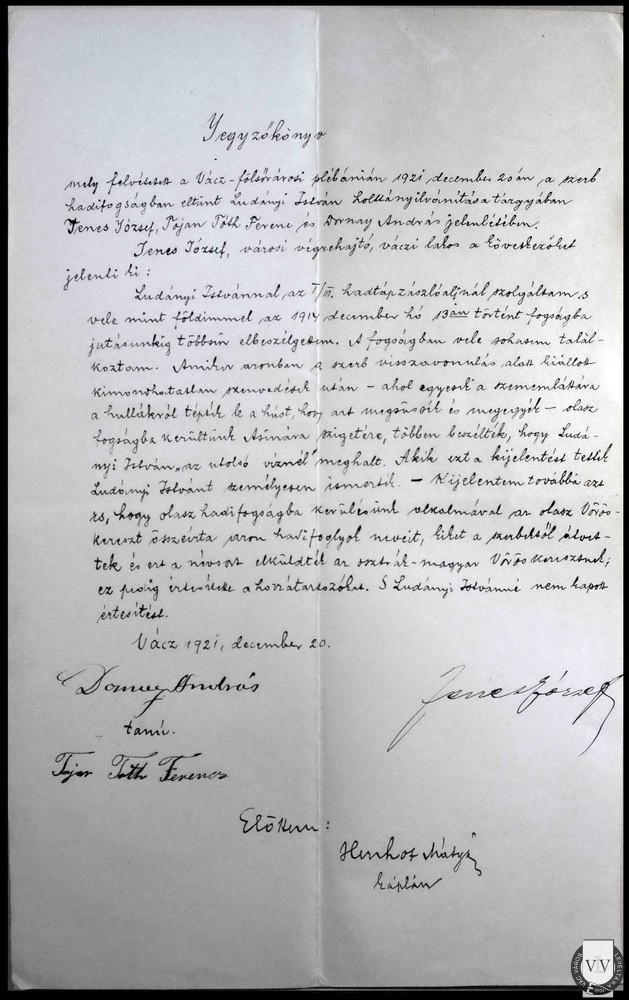 Jegyzőkönyv
mely felvétetett a Vácz-felsővárosi plébánián 1921 december 20án, a szerb
hadifogságban eltünt Ludányi István holttányilvánitása tárgyában
Jenes József, Tóth Ferenc és Dornay András jelenlétében.
Jenes József, városi végrehajtó, váczi lakos a következőket
jelenti ki:
Ludányi Istvánnal az I/III. hadtápzászlóaljnál szolgáltam s
vele mint földimmel az 1914 december hó 13án történt fogságba
jutásunkig többször elbeszélgettem. A fogságban vele sohasem talál-
koztam. Amikor azonban a szerb visszavonulás alatt kiállott
kimondhatatlan szenvedések után – ahol egyesek a szemem láttára
a hullákról tépték le a húst, hogy azt megsüssék és megegyék – olasz
fogságba kerültünk Asinára szigetére, többen beszélték, hogy Ludá-
nyi István „az utolsó víznél" meghalt. Akik ezt a kijelentést tették
Ludányi Istvánt személyesen ismerték. – Kijelentem továbbá azt
is, hogy olasz hadifogságba kerülésünk alkalmával az olasz Vörös-
kereszt összeírta azon hadifoglyok neveit, kiket a szerbektől átvet-
tek és ezt a névsort elküldték az osztrák-magyar Vöröskeresztnek;
ez pedig értesítette a hozzátartozókat. S Ludányi Istvánné nem kapott
értesítést.
Vácz 1921, december 20.
András
Jenes József
tanú.
Tóth Ferencz
Előttem:
Mátyás
káplán
VV
VÁC VÁROS LEVÉLTÁRA